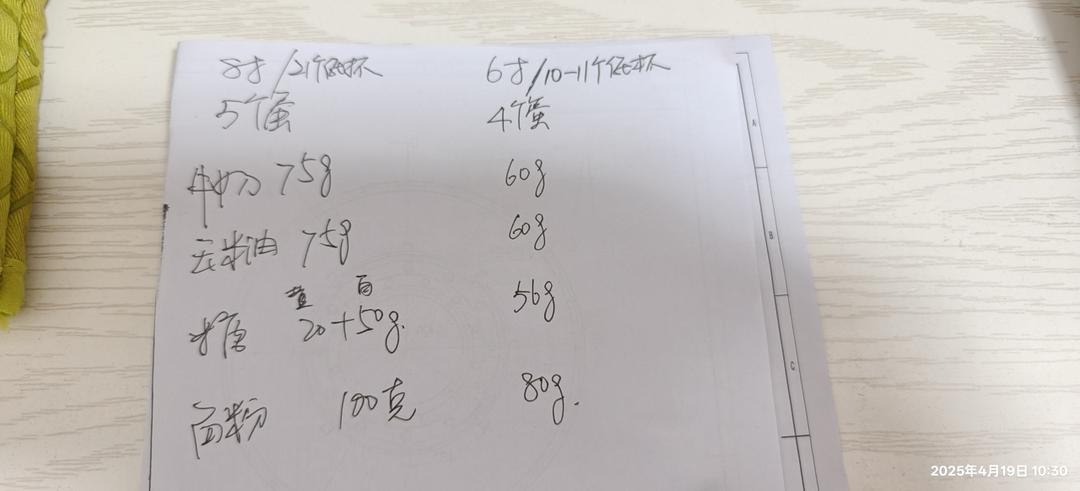 8寸/21个纸杯 6寸/10-11个纸杯
5个蛋 4个蛋
牛奶 75g 60g
玉米油 75g 60g
黄 白
糖 20+50g. 56g
面粉 100克 80g.
A
B
C
2025年4月19日 10:30